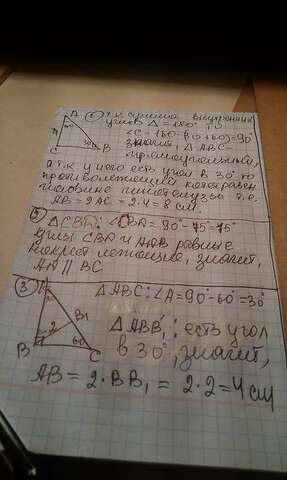 ① т.к сумма внутренних
углов Δ = 180°, то
∠C = 180-(30+60)=90°
значит, ΔABC-
прямоугольный,
а т.к у него есть угол в 30° то
противолежащий катет равен
половине гипотенузы т.е.
AB = 2AC = 2·4 = 8 см.
A
C
B
30
②
ΔCBA: ∠CBA = 90°-75°=75°
углы CBA и
равные
накрест лежащие, значит,
AD || BC
③
A
B₁
B
C
2
60
ΔABC: ∠A=90°-60°=30°
ΔABB₁: есть угол
в 30°, значит,
AB = 2·BB₁ = 2·2=4 см